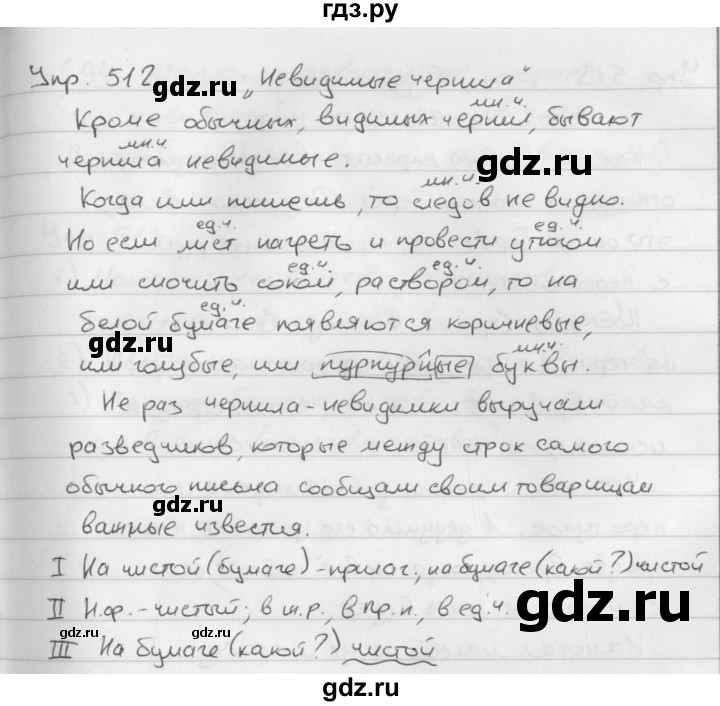 гдз.ру
Упр. 512 „Невидимые чернила"
gdz.ru
мн.ч.
Кроме обычных, видимых чернил, бывают
мн.ч.
чернила невидимые.
gdz.ru
мн.ч.
Когда ими пишешь, то следов не видно.
ед.ч. ед.ч.
Но если лист нагреть и провести утюгом
ед.ч. ед.ч.
или смочить соком, раствором, то на
ед.ч.
белой бумаге появляются коричневые,
gdz.ru
мн.ч.
или голубые, или пурпурные буквы.
Не раз чернила-невидимки выручали
разведчиков, которые между строк самого
обычного письма сообщали своим товарищам
gdz.ru
важные известия.
I На чистой (бумаге) - прилаг.; на бумаге (какой?) чистой
II Н.ф. - чистый; в ж.р., в пр.п., в ед.ч.
gdz.ru
gdz.ru
gdz.ru
III На бумаге (какой?) чистой
gdz.ru